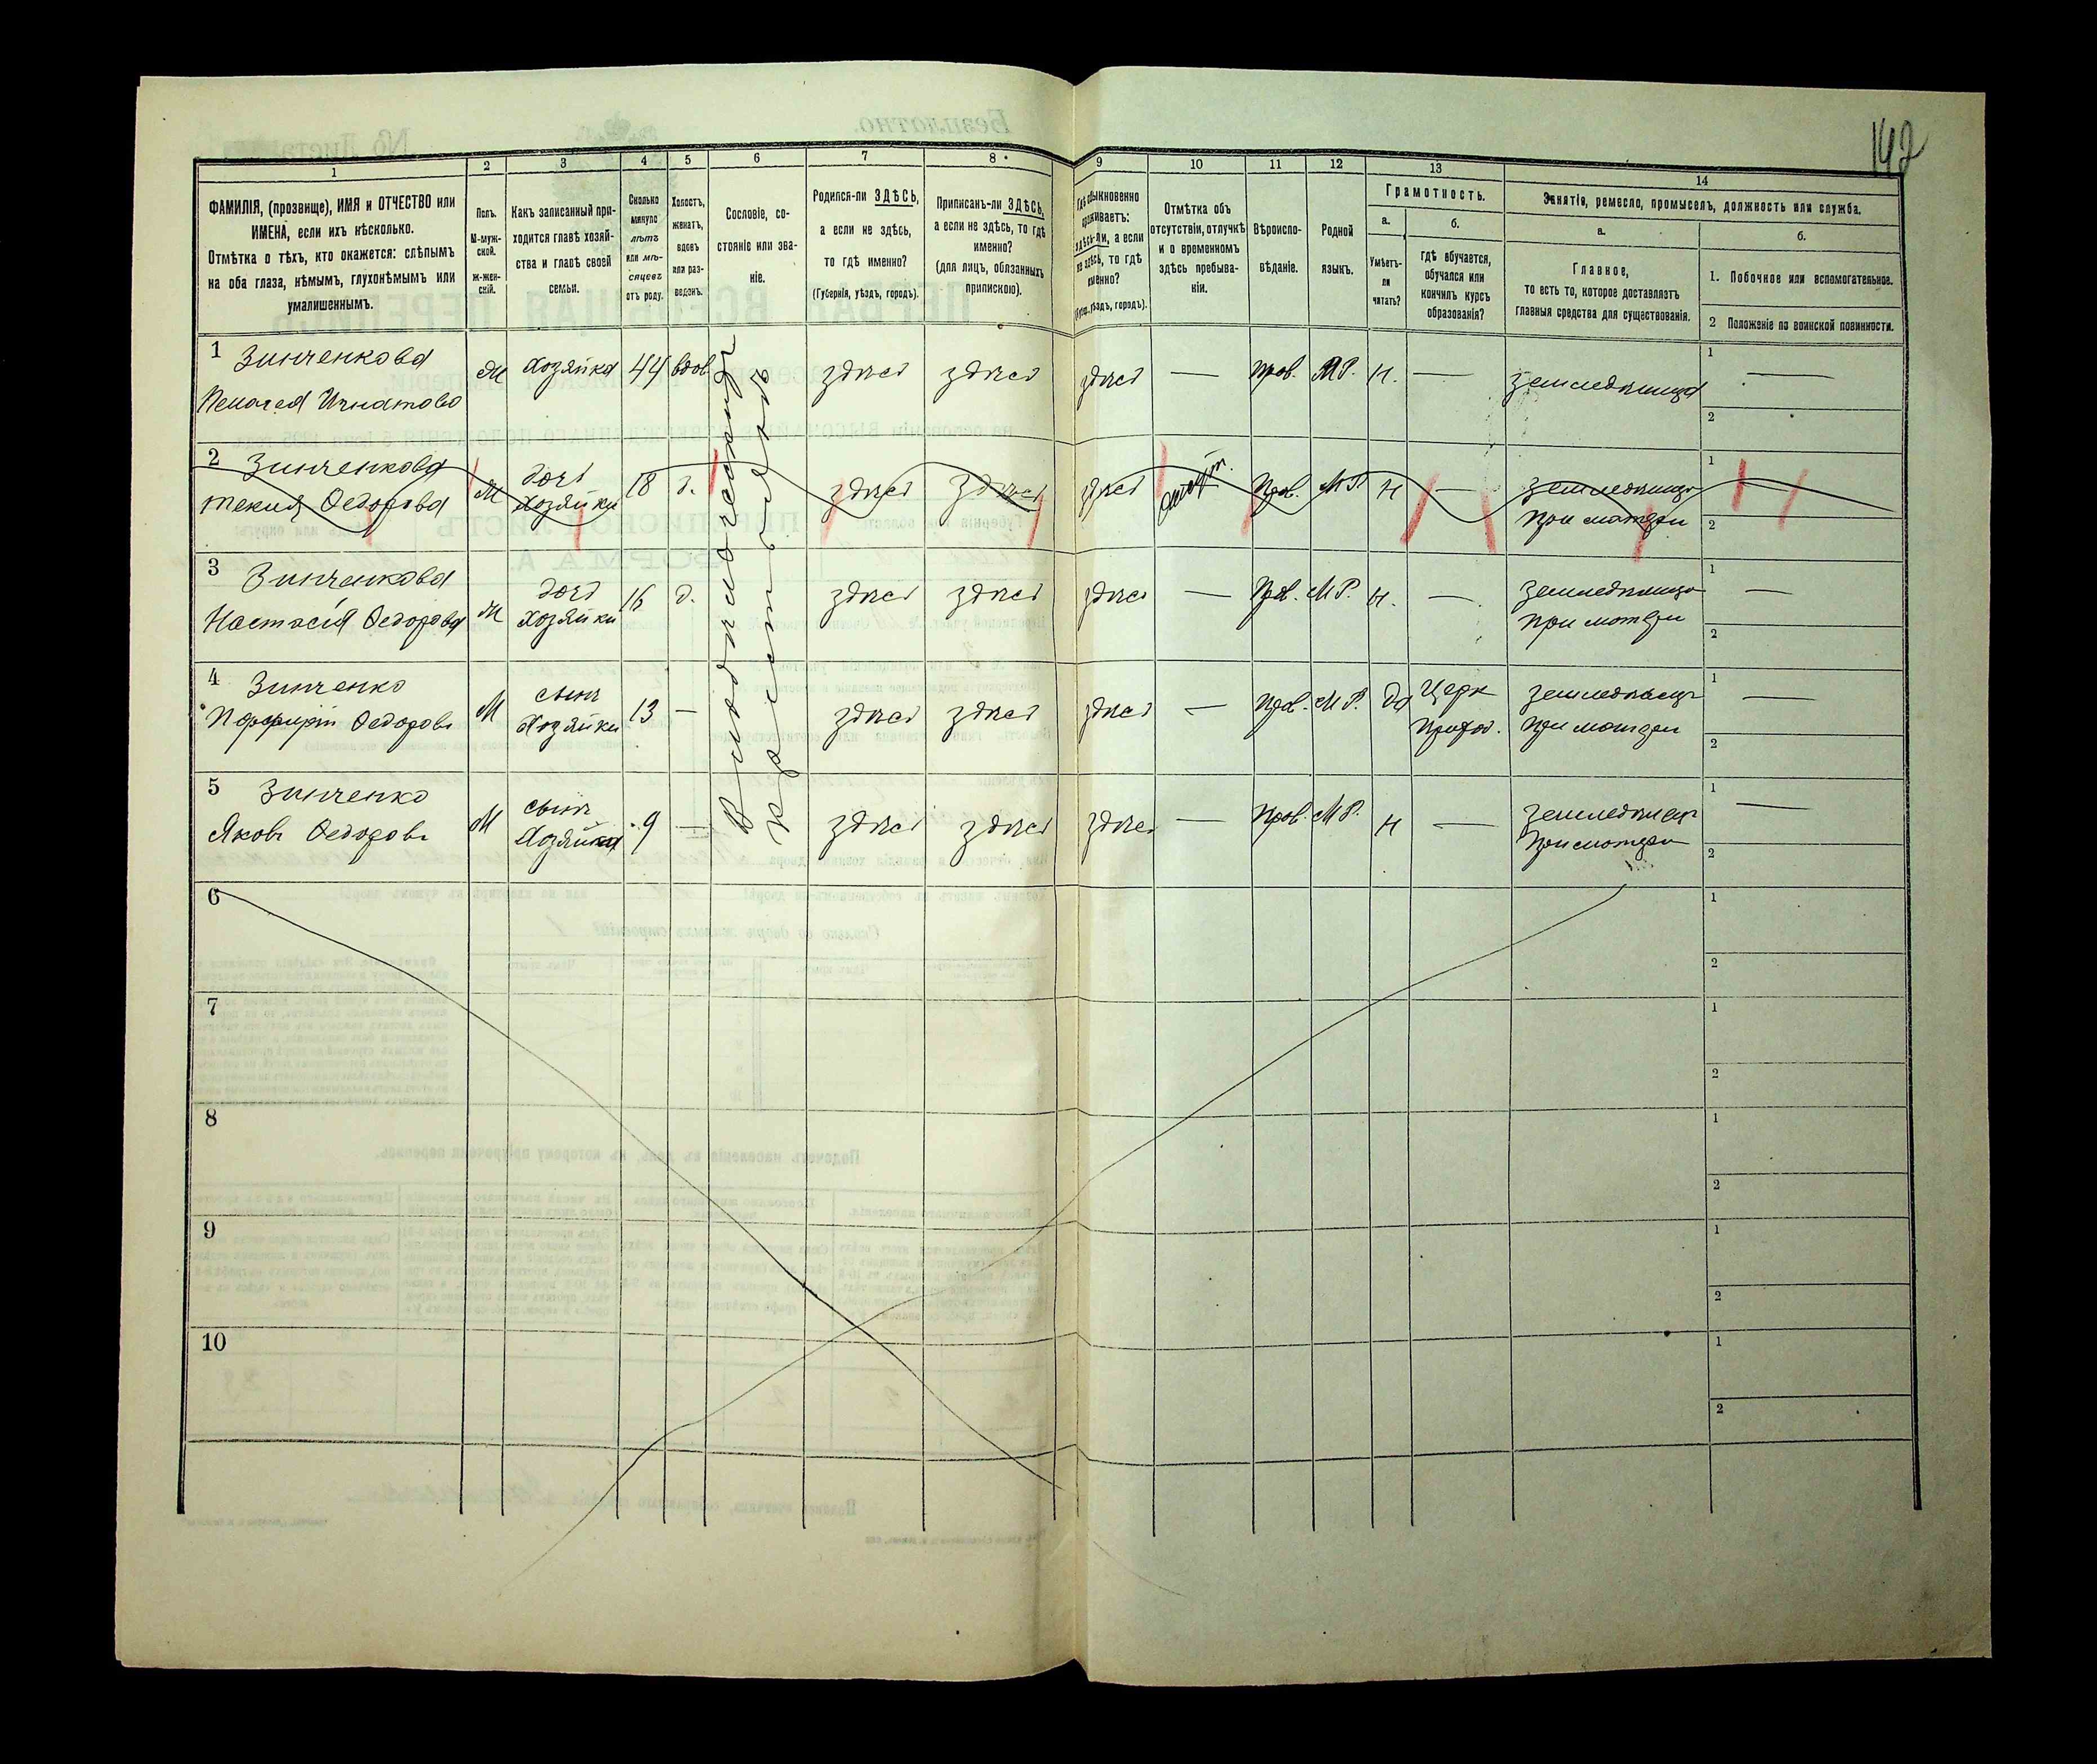 142
1 2 3 4 5 6 7 8 9 10 11 12 13 14
ФАМИЛІЯ, (прозвище), ИМЯ и ОТЧЕСТВО или
ИМЕНА, если ихъ нѣсколько.
Отмѣтка о тѣхъ, кто окажется: слѣпымъ
на оба глаза, нѣмымъ, глухонѣмымъ или
умалишеннымъ.
Полъ.
М-муж-
ской.
Ж-жен-
скій.
Какъ записанный при-
ходится главѣ хозяй-
ства и главѣ своей
семьи.
Сколько
минуло
лѣтъ
или мѣ-
сяцевъ
отъ роду.
Холостъ,
женатъ,
вдовъ
или раз-
веденъ.
Сословіе, со-
стояніе или зва-
ніе.
Родился-ли ЗДѢСЬ,
а если не здѣсь,
то гдѣ именно?
(Губернія, уѣздъ, городъ).
Приписанъ-ли ЗДѢСЬ,
а если не здѣсь, то гдѣ
именно?
(для лицъ, обязанныхъ
припискою).
Гдѣ обыкновенно
проживаетъ:
здѣсь-ли, а если
не здѣсь, то гдѣ
именно?
(Губ., уѣздъ, городъ).
Отмѣтка объ
отсутствіи, отлучкѣ
и о временномъ
здѣсь пребыва-
ніи.
Вѣроиспо-
вѣданіе.
Родной
языкъ.
Грамотность.
а.
Умѣетъ-
ли
читать?
б.
гдѣ обучается,
обучался или
кончилъ курсъ
образованія?
Занятіе, ремесло, промыселъ, должность или служба.
а.
Главное,
то есть то, которое доставляетъ
главныя средства для существованія.
б.
1. Побочное или вспомогательное.
2 Положеніе по воинской повинности.
1 Зинченкова
Пелагея Игнатова
Ж Хозяйка 44 вдов. здѣсь здѣсь здѣсь — Прав. МР. Н. — Земледѣлица
1 —
2
2 Зинченкова
Текля Федорова
Ж дочь
Хозяйки 18 д. здѣсь здѣсь здѣсь Прав. МР. Н —
Земледѣлица
При матери
1 —
2
3 Зинченкова
Настасія Федорова
Ж дочь
Хозяйки 16 д. здѣсь здѣсь здѣсь — Прав. МР. Н. —
Земледѣлица
При матери
1 —
2
4 Зинченко
Порфирій Федоровъ
М сынъ
Хозяйки 13 — здѣсь здѣсь здѣсь — Прав. МР. Да Церк
Приход.
Земледѣлецъ
При матери
1 —
2
5 Зинченко
Яковъ Федоровъ
М сынъ
Хозяйки 9 — здѣсь здѣсь здѣсь — Прав. МР. Н —
Земледѣлецъ
При матери
1 —
2
6 1
2
7 1
2
8 1
2
9 1
2
10 1
2